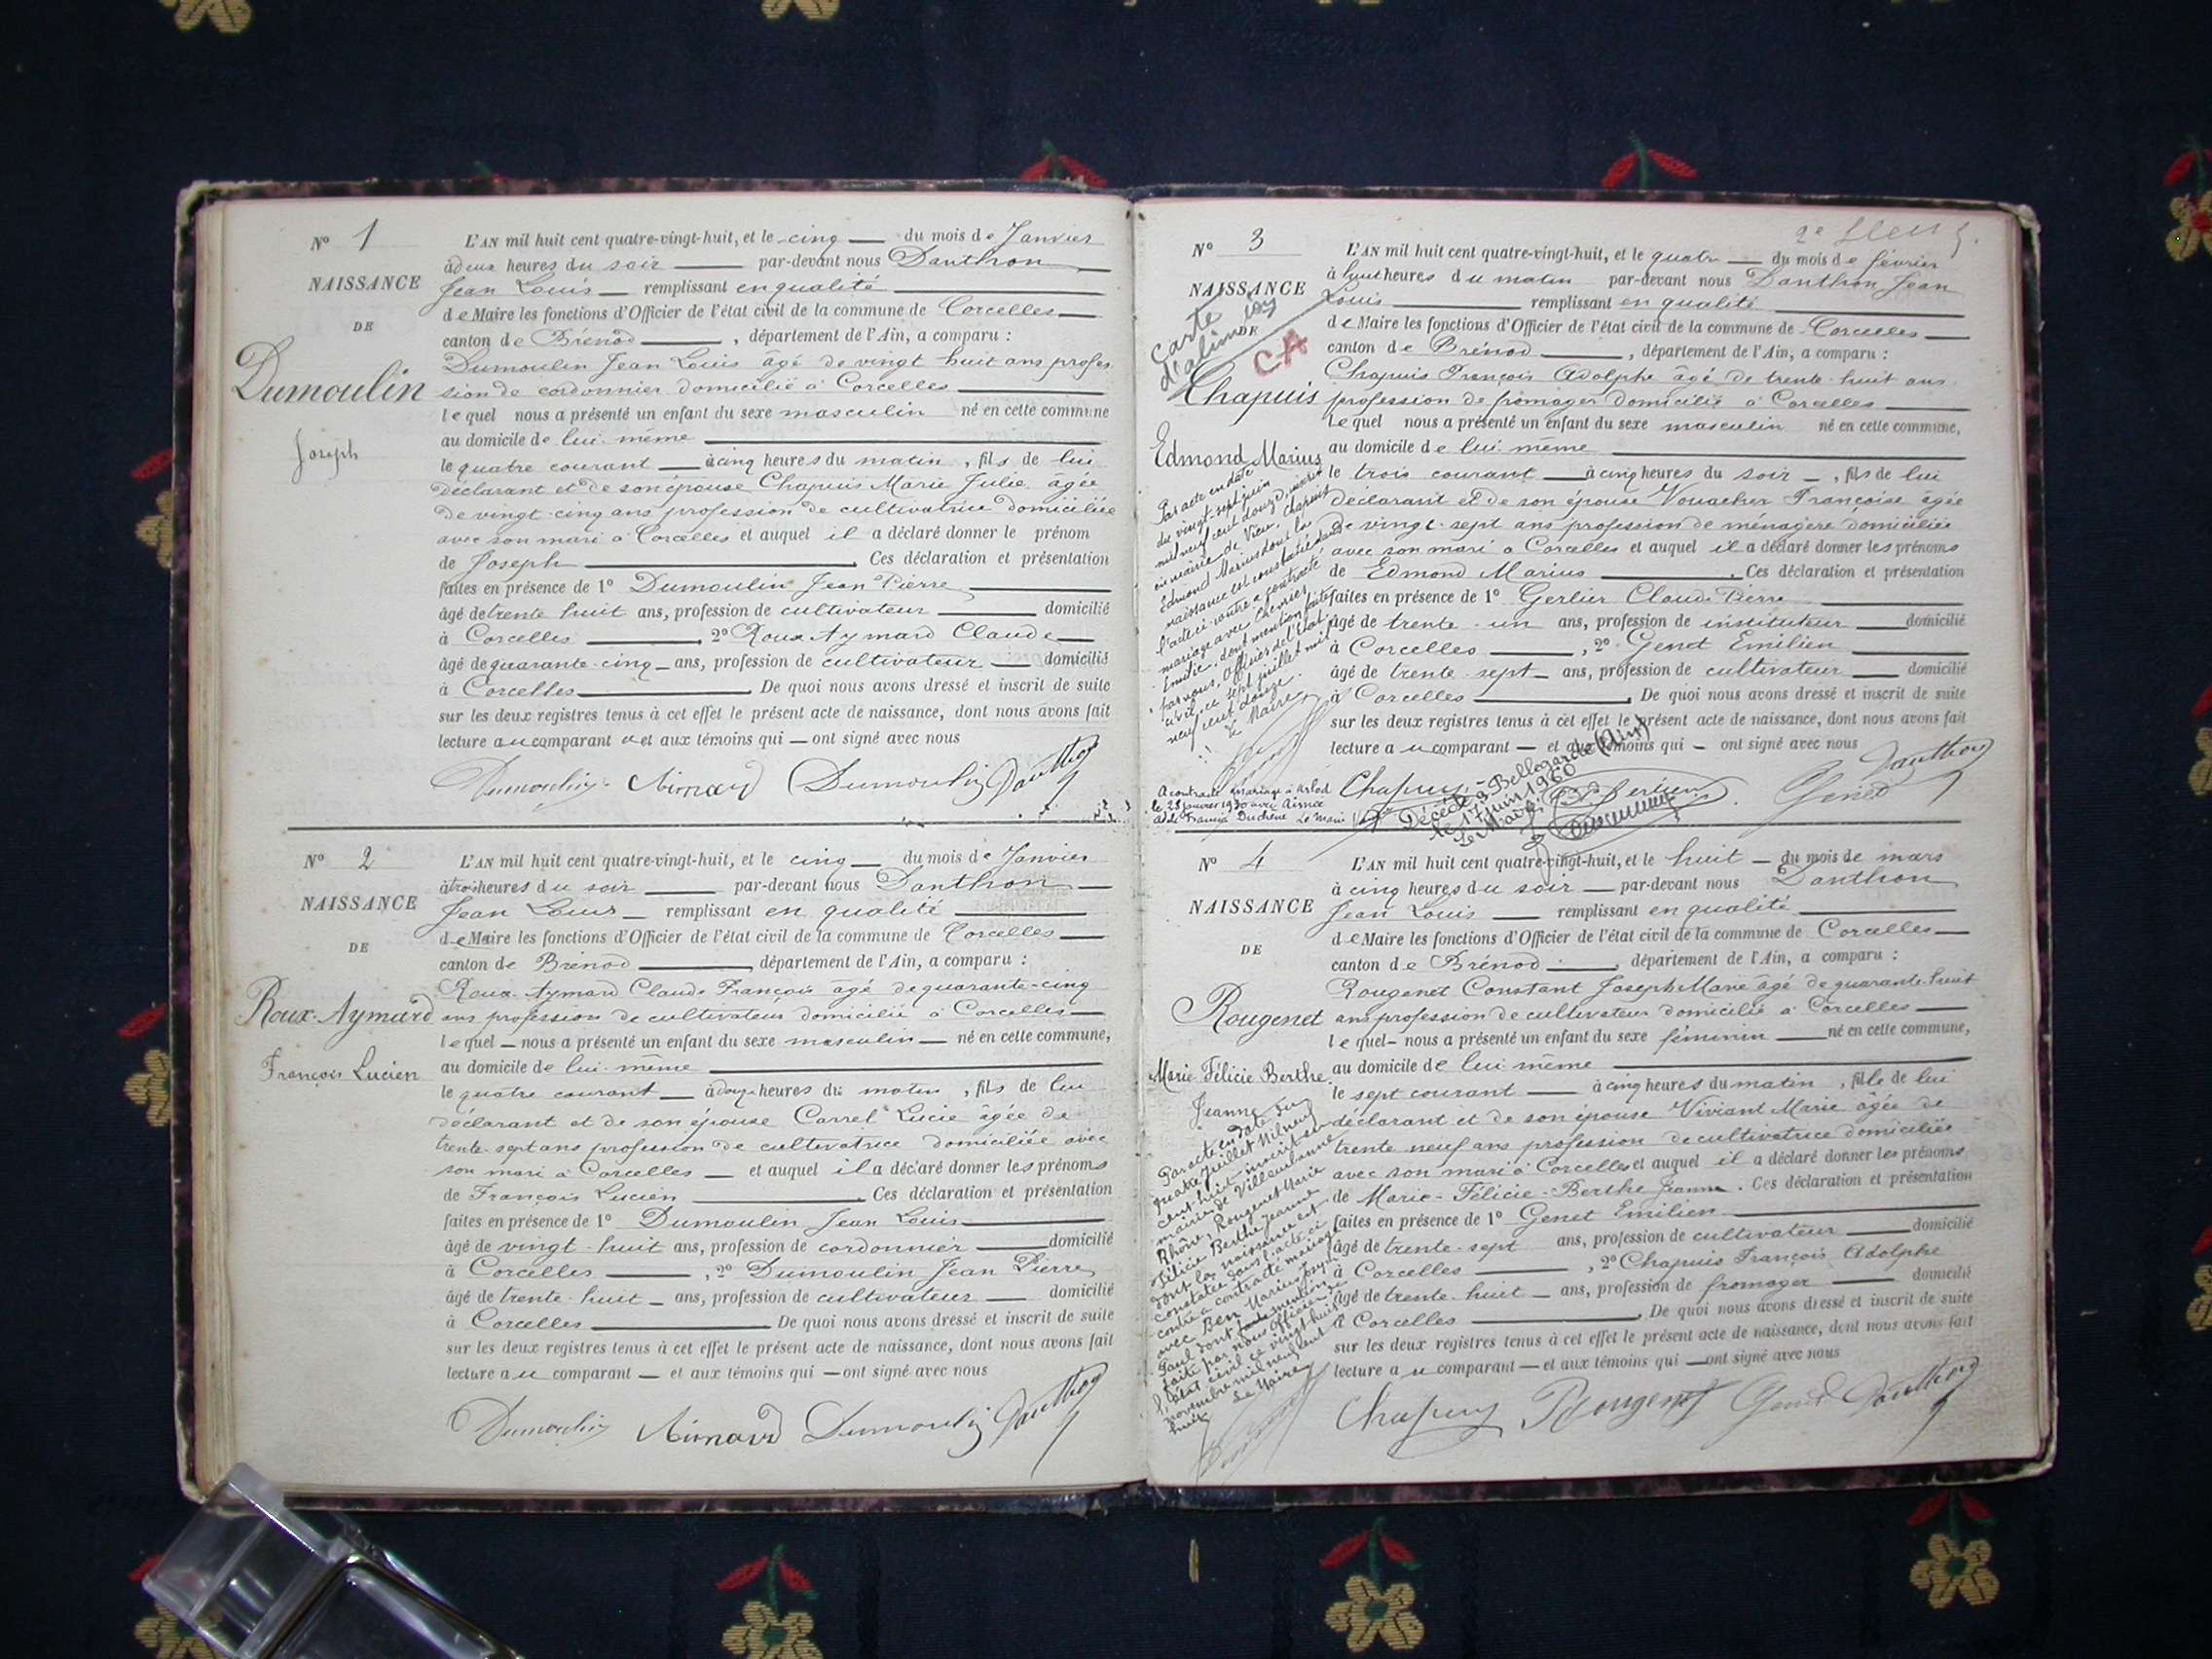 Nº 1
NAISSANCE
DE
Dumoulin
Joseph
L'AN mil huit cent quatre-vingt-huit, et le cinq du mois de Janvier
à deux heures du soir par-devant nous Danthon
Jean Louis remplissant en qualité
de Maire les fonctions d'Officier de l'état civil de la commune de Corcelles
canton de Brénod, département de l'Ain, a comparu :
Dumoulin Jean Louis âgé de vingt huit ans profes
sion de cordonnier domicilié à Corcelles
lequel nous a présenté un enfant du sexe masculin né en cette commune
au domicile de lui-même
le quatre courant à cinq heures du matin, fils de lui
déclarant et de son épouse Chapuis Marie Julie âgée
de vingt-cinq ans profession de cultivatrice domiciliée
avec son mari à Corcelles et auquel il a déclaré donner le prénom
de Joseph. Ces déclaration et présentation
faites en présence de 1º Dumoulin Jean Pierre
âgé de trente huit ans, profession de cultivateur domicilié
à Corcelles, 2º Roux-Aymard Claude
âgé de quarante-cinq ans, profession de cultivateur domicilié
à Corcelles. De quoi nous avons dressé et inscrit de suite
sur les deux registres tenus à cet effet le présent acte de naissance, dont nous avons fait
lecture au comparant et aux témoins qui ont signé avec nous
Dumoulin Aimard Dumoulin Danthon
Nº 2
NAISSANCE
DE
Roux-Aymard
François Lucien
L'AN mil huit cent quatre-vingt-huit, et le cinq du mois de Janvier
à trois heures du soir par-devant nous Danthon
Jean Louis remplissant en qualité
de Maire les fonctions d'Officier de l'état civil de la commune de Corcelles
canton de Brénod, département de l'Ain, a comparu :
Roux-Aymard Claude François âgé de quarante-cinq
ans profession de cultivateur domicilié à Corcelles
lequel nous a présenté un enfant du sexe masculin né en cette commune,
au domicile de lui-même
le quatre courant à heures du matin, fils de lui
déclarant et de son épouse Carrel Lucie âgée de
trente-sept ans profession de cultivatrice domiciliée avec
son mari à Corcelles et auquel il a déclaré donner les prénoms
de François Lucien. Ces déclaration et présentation
faites en présence de 1º Dumoulin Jean Louis
âgé de vingt-huit ans, profession de cordonnier domicilié
à Corcelles, 2º Dumoulin Jean Pierre
âgé de trente-huit ans, profession de cultivateur domicilié
à Corcelles. De quoi nous avons dressé et inscrit de suite
sur les deux registres tenus à cet effet le présent acte de naissance, dont nous avons fait
lecture au comparant et aux témoins qui ont signé avec nous
Dumoulin Aimard Dumoulin Danthon
Nº 3
NAISSANCE
DE
Carte
d'alim
CA
Chapuis
Edmond Marius
Par acte en date
du vingt-sept juin
mil neuf cent douze, inscrit
en mairie de Vieu, Chapuis
Edmond Marius dont la
naissance est constatée dans
l'acte ci-contre a contracté
mariage avec Chemier
Emilie, dont mention faite
par nous, Officier de l'Etat
civil, ce sept juillet mil
neuf cent douze.
Le Maire,
A contracté mariage à Arlod
le 28 janvier 1930 avec Aimée
Adèle Francia Duchêne Le Maire
L'AN mil huit cent quatre-vingt-huit, et le quatre du mois de février
à huit heures du matin par-devant nous Danthon Jean
Louis remplissant en qualité
de Maire les fonctions d'Officier de l'état civil de la commune de Corcelles
canton de Brénod, département de l'Ain, a comparu :
Chapuis François Adolphe âgé de trente-huit ans
profession de fromager domicilié à Corcelles
Lequel nous a présenté un enfant du sexe masculin né en cette commune,
au domicile de lui-même
le trois courant à cinq heures du soir, fils de lui
déclarant et de son épouse Vouacher Françoise âgée
de vingt-sept ans profession de ménagère domiciliée
avec son mari à Corcelles et auquel il a déclaré donner les prénoms
de Edmond Marius. Ces déclaration et présentation
faites en présence de 1º Gerlier Claude Pierre
âgé de trente-un ans, profession de instituteur domicilié
à Corcelles, 2º Genet Emilien
âgé de trente-sept ans, profession de cultivateur domicilié
à Corcelles. De quoi nous avons dressé et inscrit de suite
sur les deux registres tenus à cet effet le présent acte de naissance, dont nous avons fait
lecture au comparant et aux témoins qui ont signé avec nous
Danthon
Chapuis Gerlier Genet
Décédé à Bellegarde (Ain)
le 17 juin 1960
Le Maire,
Nº 4
NAISSANCE
DE
Rougenet
Marie Félicie Berthe
Jeanne
Par acte en date du
quatre Juillet Mil neuf
cent huit inscrit en
mairie de Villeurbanne
Rhône, Rougenet Marie
Félicie Berthe Jeanne
dont la naissance est
constatée dans l'acte ci
contre a contracté mariage
avec Berr Marius Joseph
Paul dont mention
faite par nous Officier de
l'Etat civil ce vingt huit
novembre mil neuf cent
huit
Le Maire
L'AN mil huit cent quatre-vingt-huit, et le huit du mois de mars
à cinq heures du soir par-devant nous Danthon
Jean Louis remplissant en qualité
de Maire les fonctions d'Officier de l'état civil de la commune de Corcelles
canton de Brénod, département de l'Ain, a comparu :
Rougenet Constant Joseph Marie âgé de quarante-huit
ans profession de cultivateur domicilié à Corcelles
lequel nous a présenté un enfant du sexe féminin né en cette commune,
au domicile de lui-même
le sept courant à cinq heures du matin, fille de lui
déclarant et de son épouse Viviant Marie âgée de
trente neuf ans profession de cultivatrice domiciliée
avec son mari à Corcelles et auquel il a déclaré donner les prénoms
de Marie-Félicie-Berthe Jeanne. Ces déclaration et présentation
faites en présence de 1º Genet Emilien
âgé de trente-sept ans, profession de cultivateur domicilié
à Corcelles, 2º Chapuis François Adolphe
âgé de trente-huit ans, profession de fromager domicilié
à Corcelles. De quoi nous avons dressé et inscrit de suite
sur les deux registres tenus à cet effet le présent acte de naissance, dont nous avons fait
lecture au comparant et aux témoins qui ont signé avec nous
Chapuis Rougenet Genet Danthon